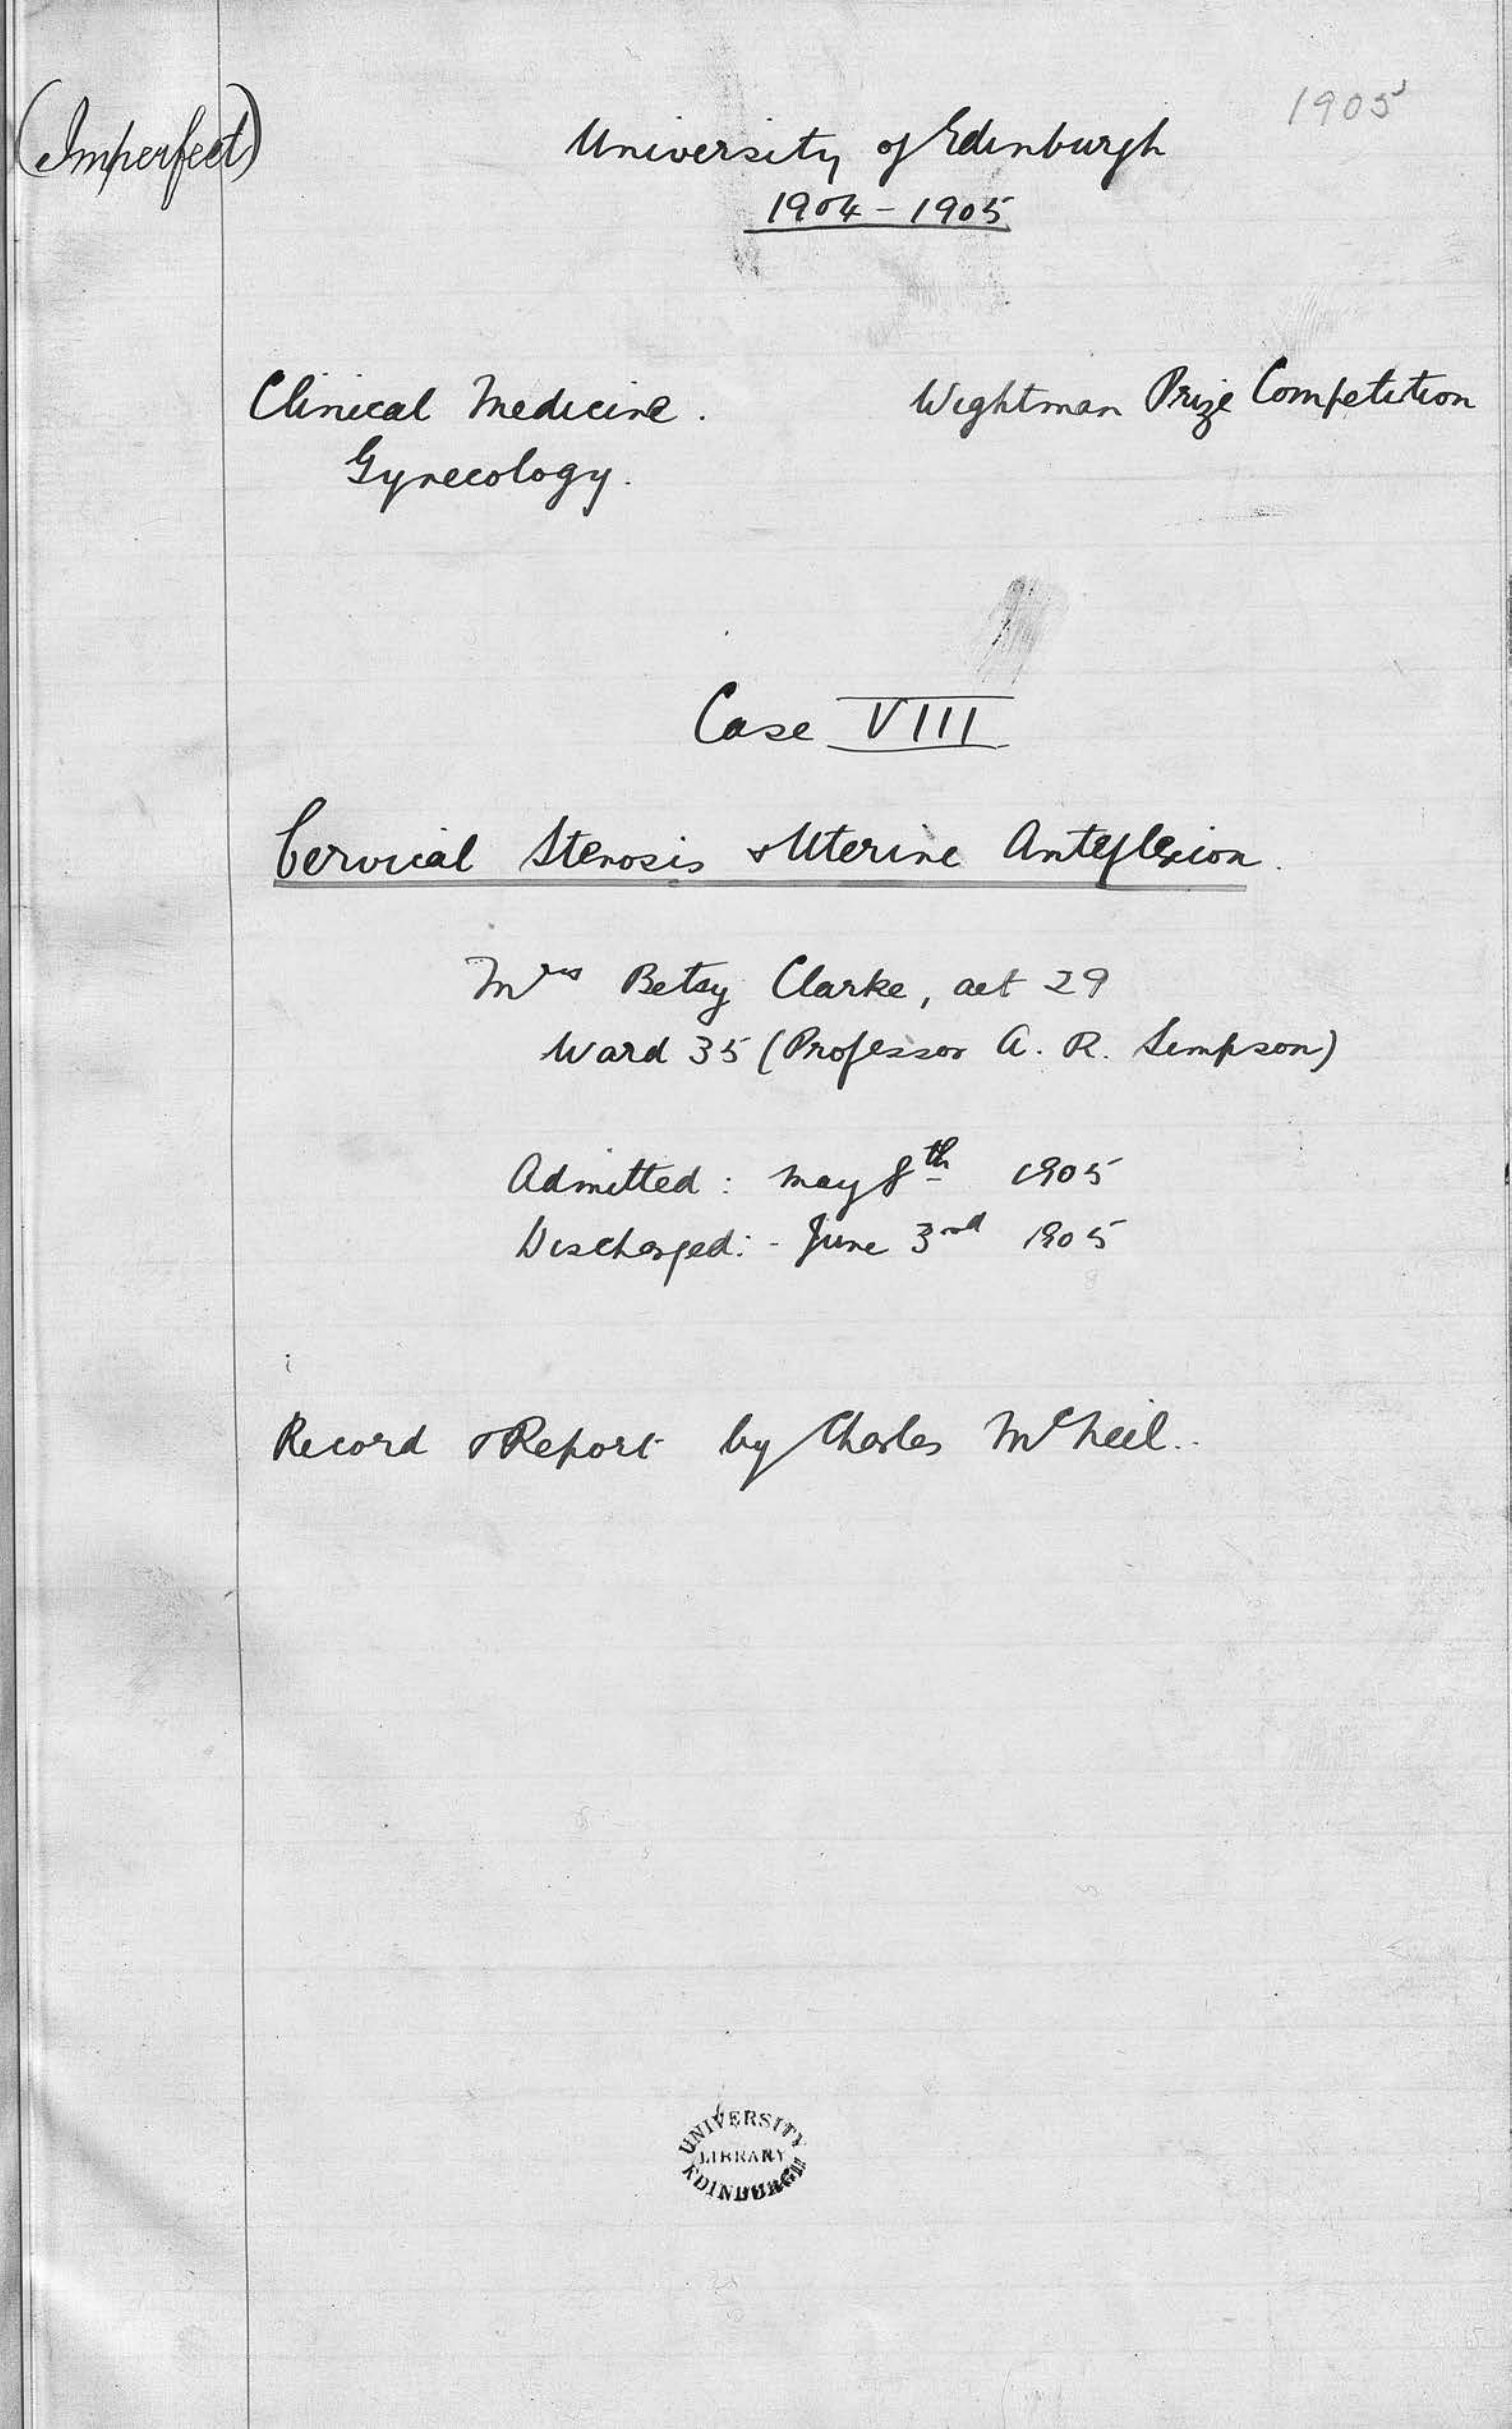 (Imperfect)
1905
University of Edinburgh
1904 - 1905
Clinical Medicine.
Wightman Prize Competition
Gynecology.
Case VIII
Cervical Stenosis & Uterine Anteflexion.
Mrs Betsy Clarke, aet 29
Ward 35 (Professor A. R. Simpson)
Admitted: May 8th 1905
Discharged: - June 3rd 1905
Record & Report by Charles McNeil..
UNIVERSITY
LIBRARY
EDINBURGH